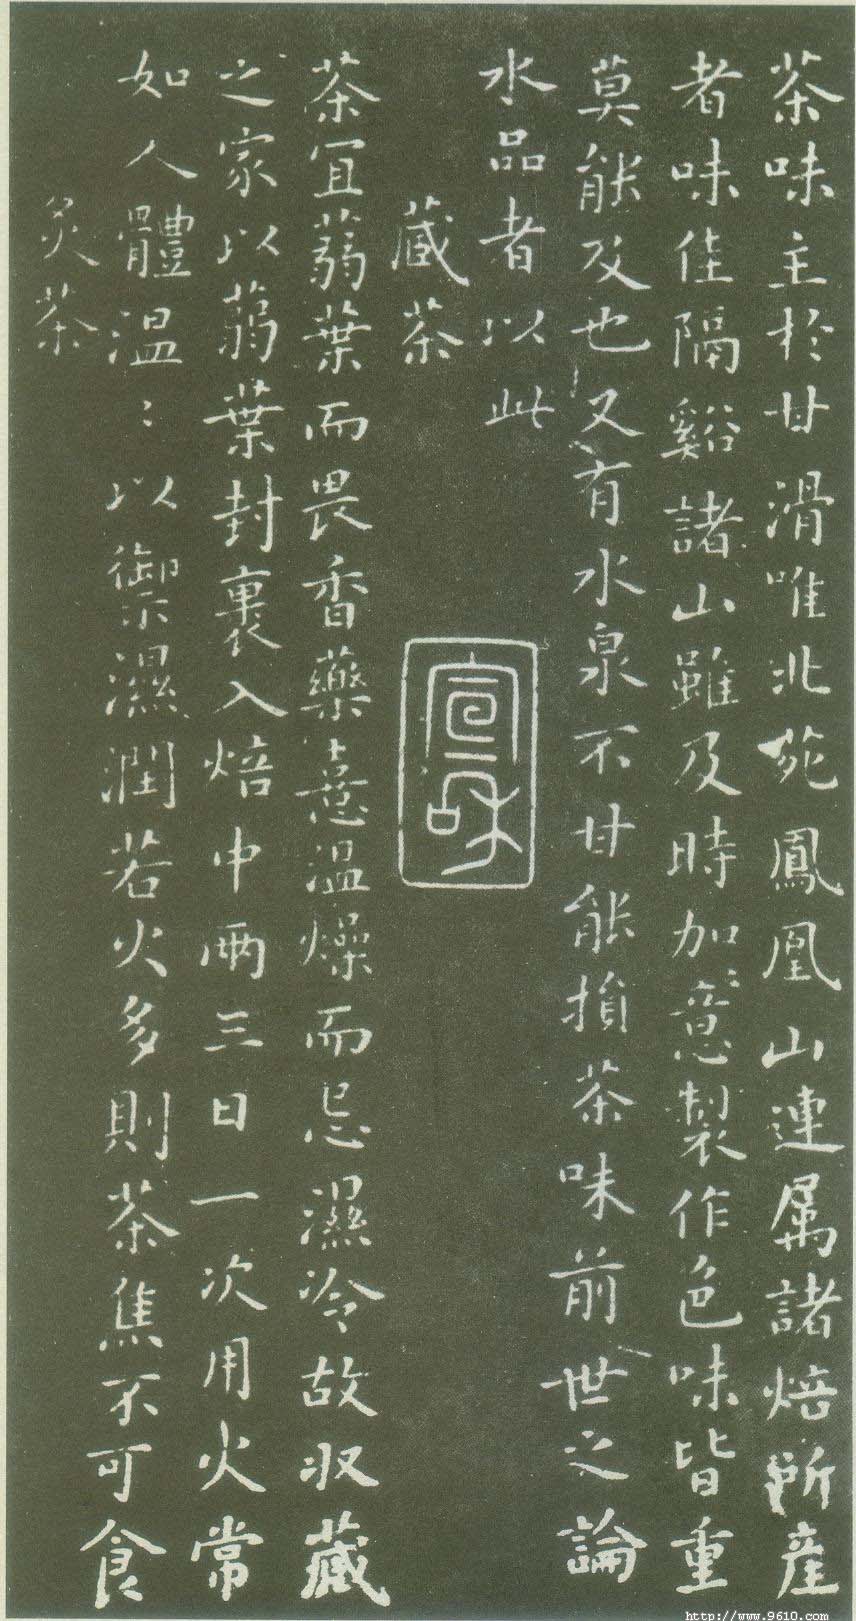 茶味主於甘滑唯北苑鳳凰山連屬諸焙所產
者味佳隔谿諸山雖及時加意製作色味皆重
莫能及也又有水泉不甘能損茶味前世之論
水品者以此
藏茶
宣和
茶宜蒻葉而畏香藥憙溫燥而忌濕冷故收藏
之家以蒻葉封裹入焙中兩三日一次用火常
如人體溫：以御濕潤若火多則茶焦不可食
炙茶
http://www.9610.com